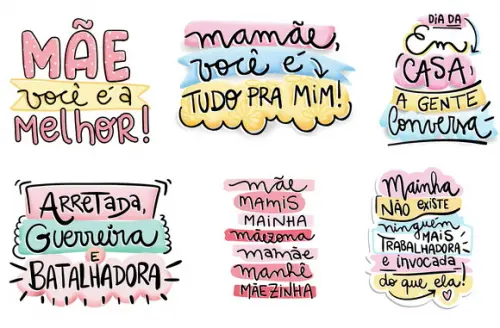 MÃE
você é a
melhor!
mamãe,
você é
TUDO PRA MIM!
DIA DA
Em
CASA,
A GENTE
Conversa
ARRETADA,
Guerreira
E
BATALHADORA
mãe
MAMIS
MAINHA
mãezona
mamãe
manhê
MÃEZINHA
Mainha
NÃO EXISTE
ninguém
MAIS
TRABALHADORA
e invocada
do que ela!